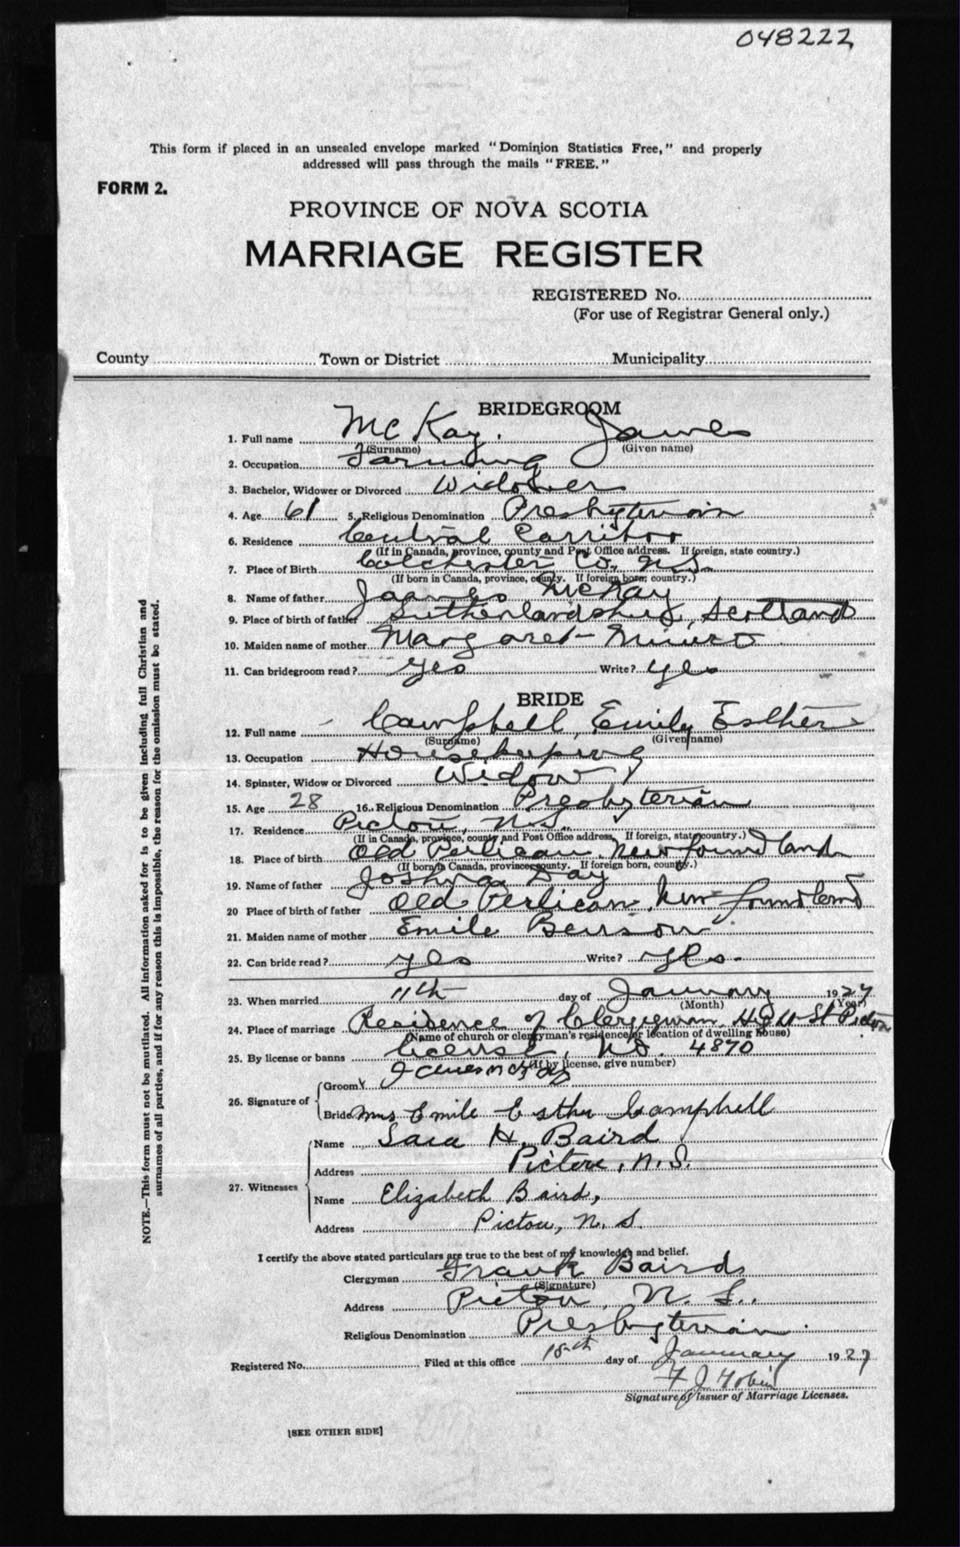 048222
This form if placed in an unsealed envelope marked "Dominion Statistics Free," and properly
addressed will pass through the mails "FREE."
FORM 2.
PROVINCE OF NOVA SCOTIA
MARRIAGE REGISTER
REGISTERED No.
(For use of Registrar General only.)
County Town or District Municipality
BRIDEGROOM
1. Full name McKay, James
(Surname) (Given name)
2. Occupation Farming
3. Bachelor, Widower or Divorced Widower
4. Age 61 5. Religious Denomination Presbyterian
6. Residence Central Carriboo
(If in Canada, province, county and Post Office address. If foreign, state country.)
7. Place of Birth Colchester Co. N.S.
(If born in Canada, province, county. If foreign born; country.)
8. Name of father James McKay
9. Place of birth of father Sutherlandshire, Scotland
10. Maiden name of mother Margaret Munro
11. Can bridegroom read? yes Write? yes
BRIDE
12. Full name Campbell, Emily Esther
(Surname) (Given name)
13. Occupation Housekeeping
14. Spinster, Widow or Divorced Widow
15. Age 28 16. Religious Denomination Presbyterian
17. Residence Pictou, N.S.
(If in Canada, province, county and Post Office address, If foreign, state country.)
18. Place of birth Old Perlican, Newfoundland
(If born in Canada, province county. If foreign born, county.)
19. Name of father Joshua Day
20 Place of birth of father Old Perlican, Newfoundland
21. Maiden name of mother Emile Benson
22. Can bride read? yes Write? yes.
23. When married 11th day of January 1927
(Month) (Year)
24. Place of marriage Residence of Clergyman, St Pictou
(Name of church or clergyman's residence, or location of dwelling house)
25. By license or banns license, No. 4870
(If by license, give number)
26. Signature of Groom James McKay
Bride Mrs Emile Esther Campbell
27. Witnesses
Name Sara H. Baird
Address Pictou, N.S.
Name Elizabeth Baird,
Address Pictou, N. S.
I certify the above stated particulars are true to the best of my knowledge and belief.
Clergyman Frank Baird
(Signature)
Address Pictou, N. S.
Religious Denomination Presbyterian.
Registered No. Filed at this office 18th day of January 1927
F J Tobin
Signature of Issuer of Marriage Licenses.
[SEE OTHER SIDE]
NOTE.—This form must not be mutilated. All information asked for is to be given including full Christian and
surnames of all parties, and if for any reason this is impossible, the reason for the omission must be stated.